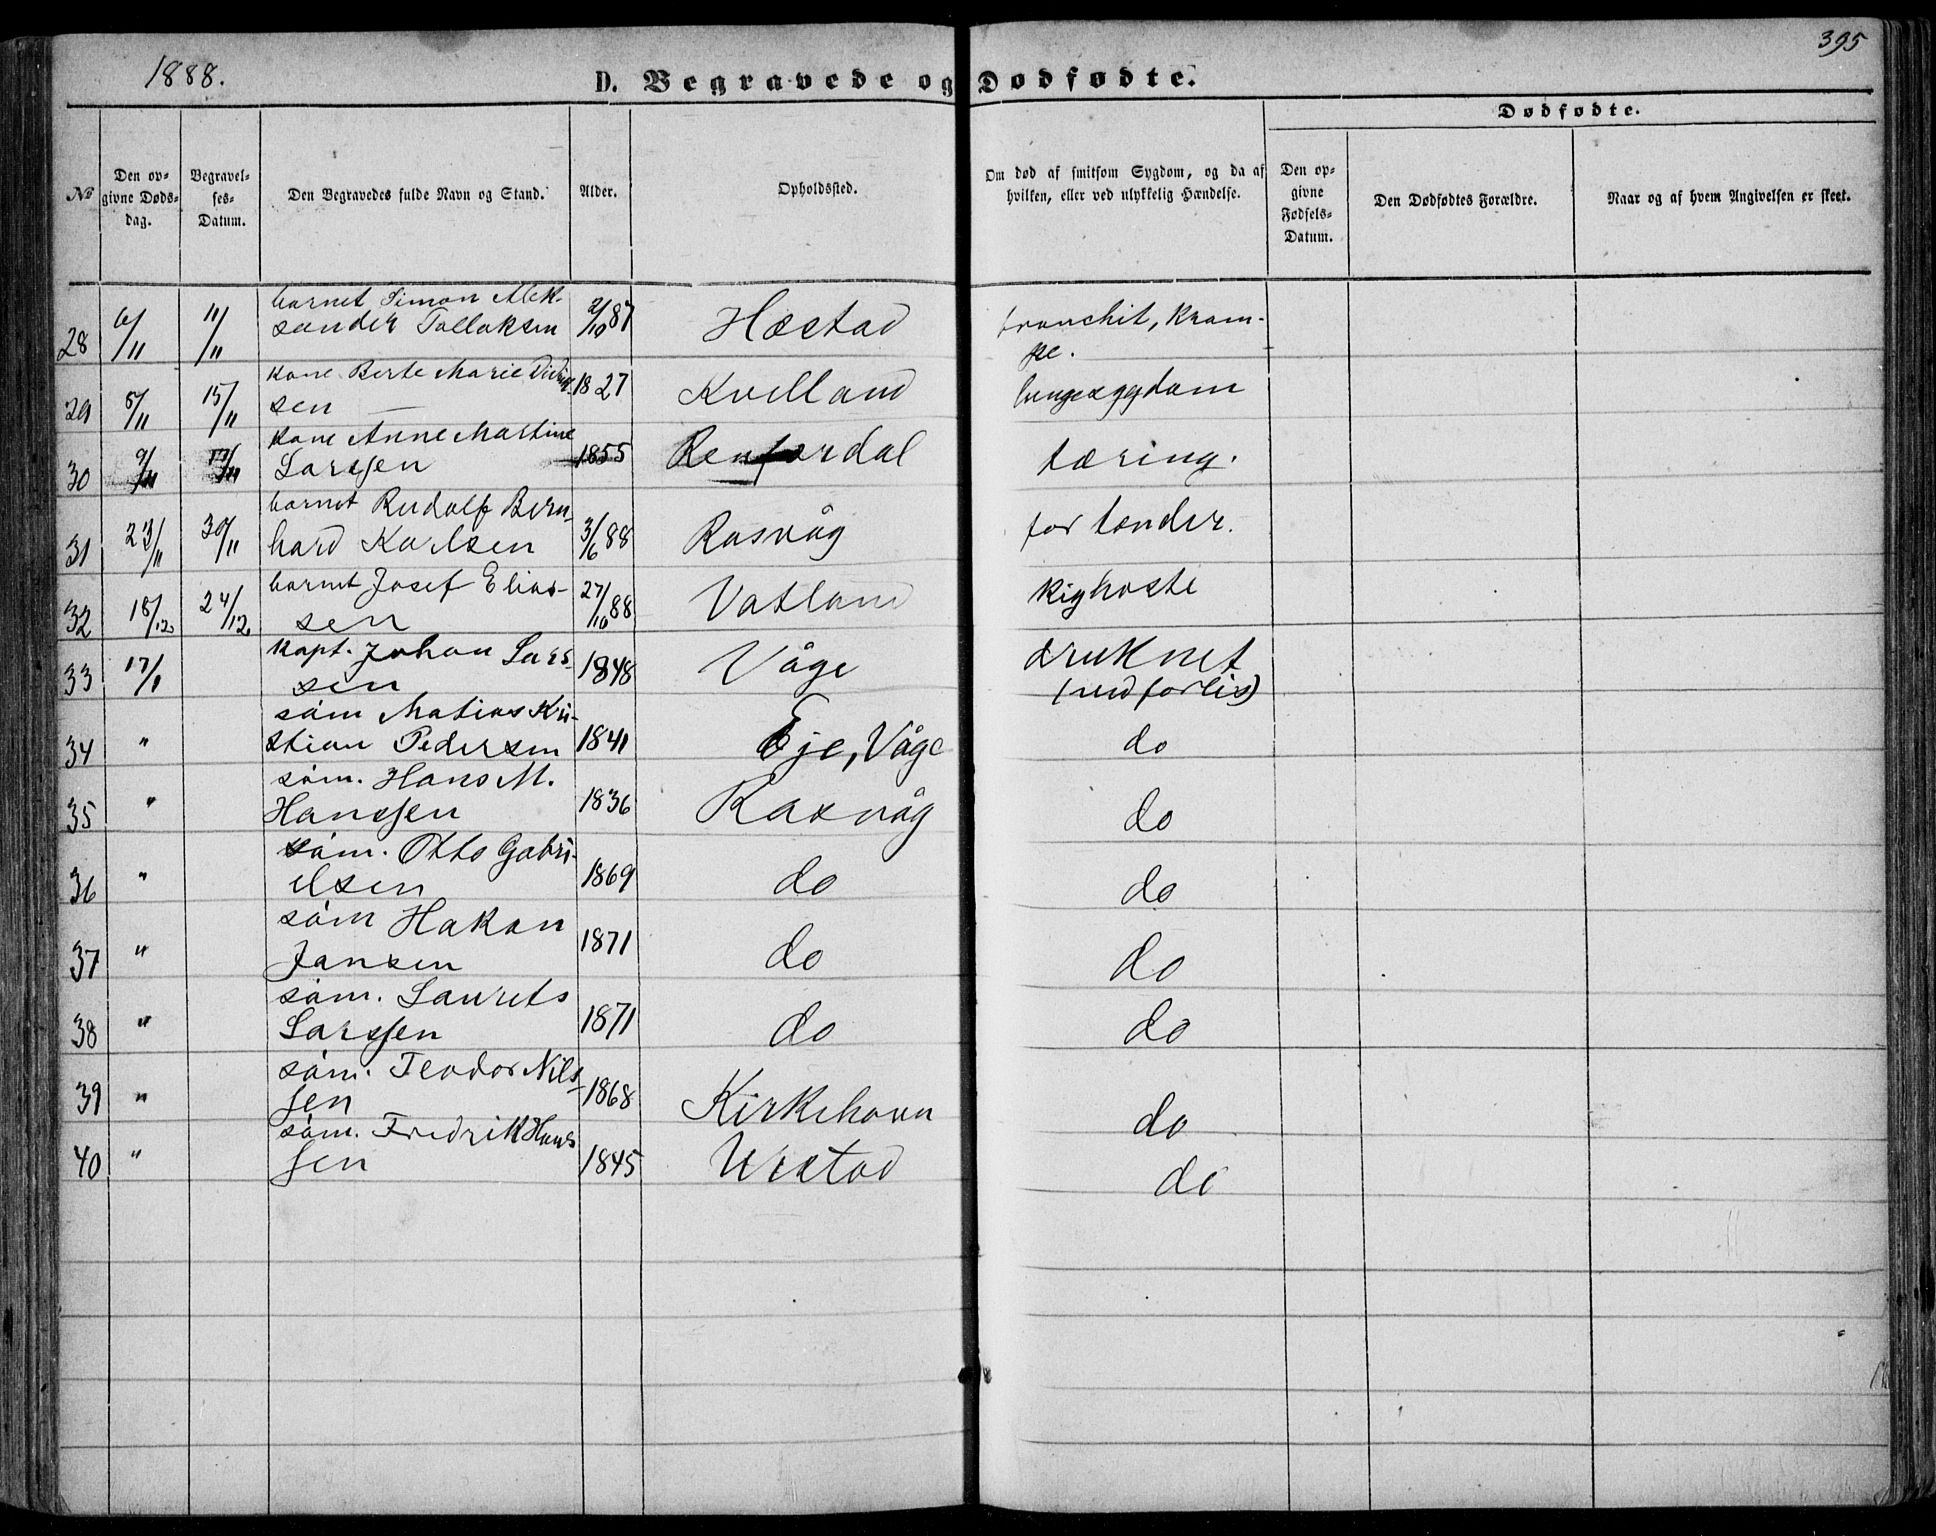 1888.
D. Begravede og Dødfødte.
395
Dødfødte.
No
Den op-
givne Døds-
dag.
Begravel-
ses-
Datum.
Den Begravedes fulde Navn og Stand.
Alder.
Opholdssted.
Om død af smitsom Sygdom, og da af
hvilken, eller ved ulykkelig Hændelse.
Den op-
givne
Fødsels-
Datum.
Den Dødfødtes Forældre.
Naar og af hvem Angivelsen er skeet.
28 6/11 11/11 barnet Simon Alek-
sander Tollaksen 2/10 87 Hæstad bronchit, Kram-
pe.
29 5/11 15/11 kone Berte Marie
sen 1827 Kvelland lungesygdom
30 9/11 17/11 kone Anne Martine
Larssen 1855 tæring.
31 23/11 30/11 barnet Rudolf Bern-
hard Karlsen 3/6 88 Rasvåg for tænder.
32 18/12 24/12 barnet Josef Elias-
sen 27/10 88 Vatland kighoste
33 17/1 kapt. Johan Lars-
sen 1848 Våge druknet
(ved forlis)
34 " søm Matias Kri-
stian Pedersen 1841 Eje, Våge do
35 " søm. Hans M.
Hanssen 1836 Rasvåg do
36 " søm. Otto Gabri-
elsen 1869 do do
37 " søm Hakon
Jansen 1871 do do
38 " søm. Laurets
Larssen 1871 do do
39 " søm. Teodor Nils-
sen 1868 Kirkehavn do
40 " søm. Fredrik Hans
sen 1845 do